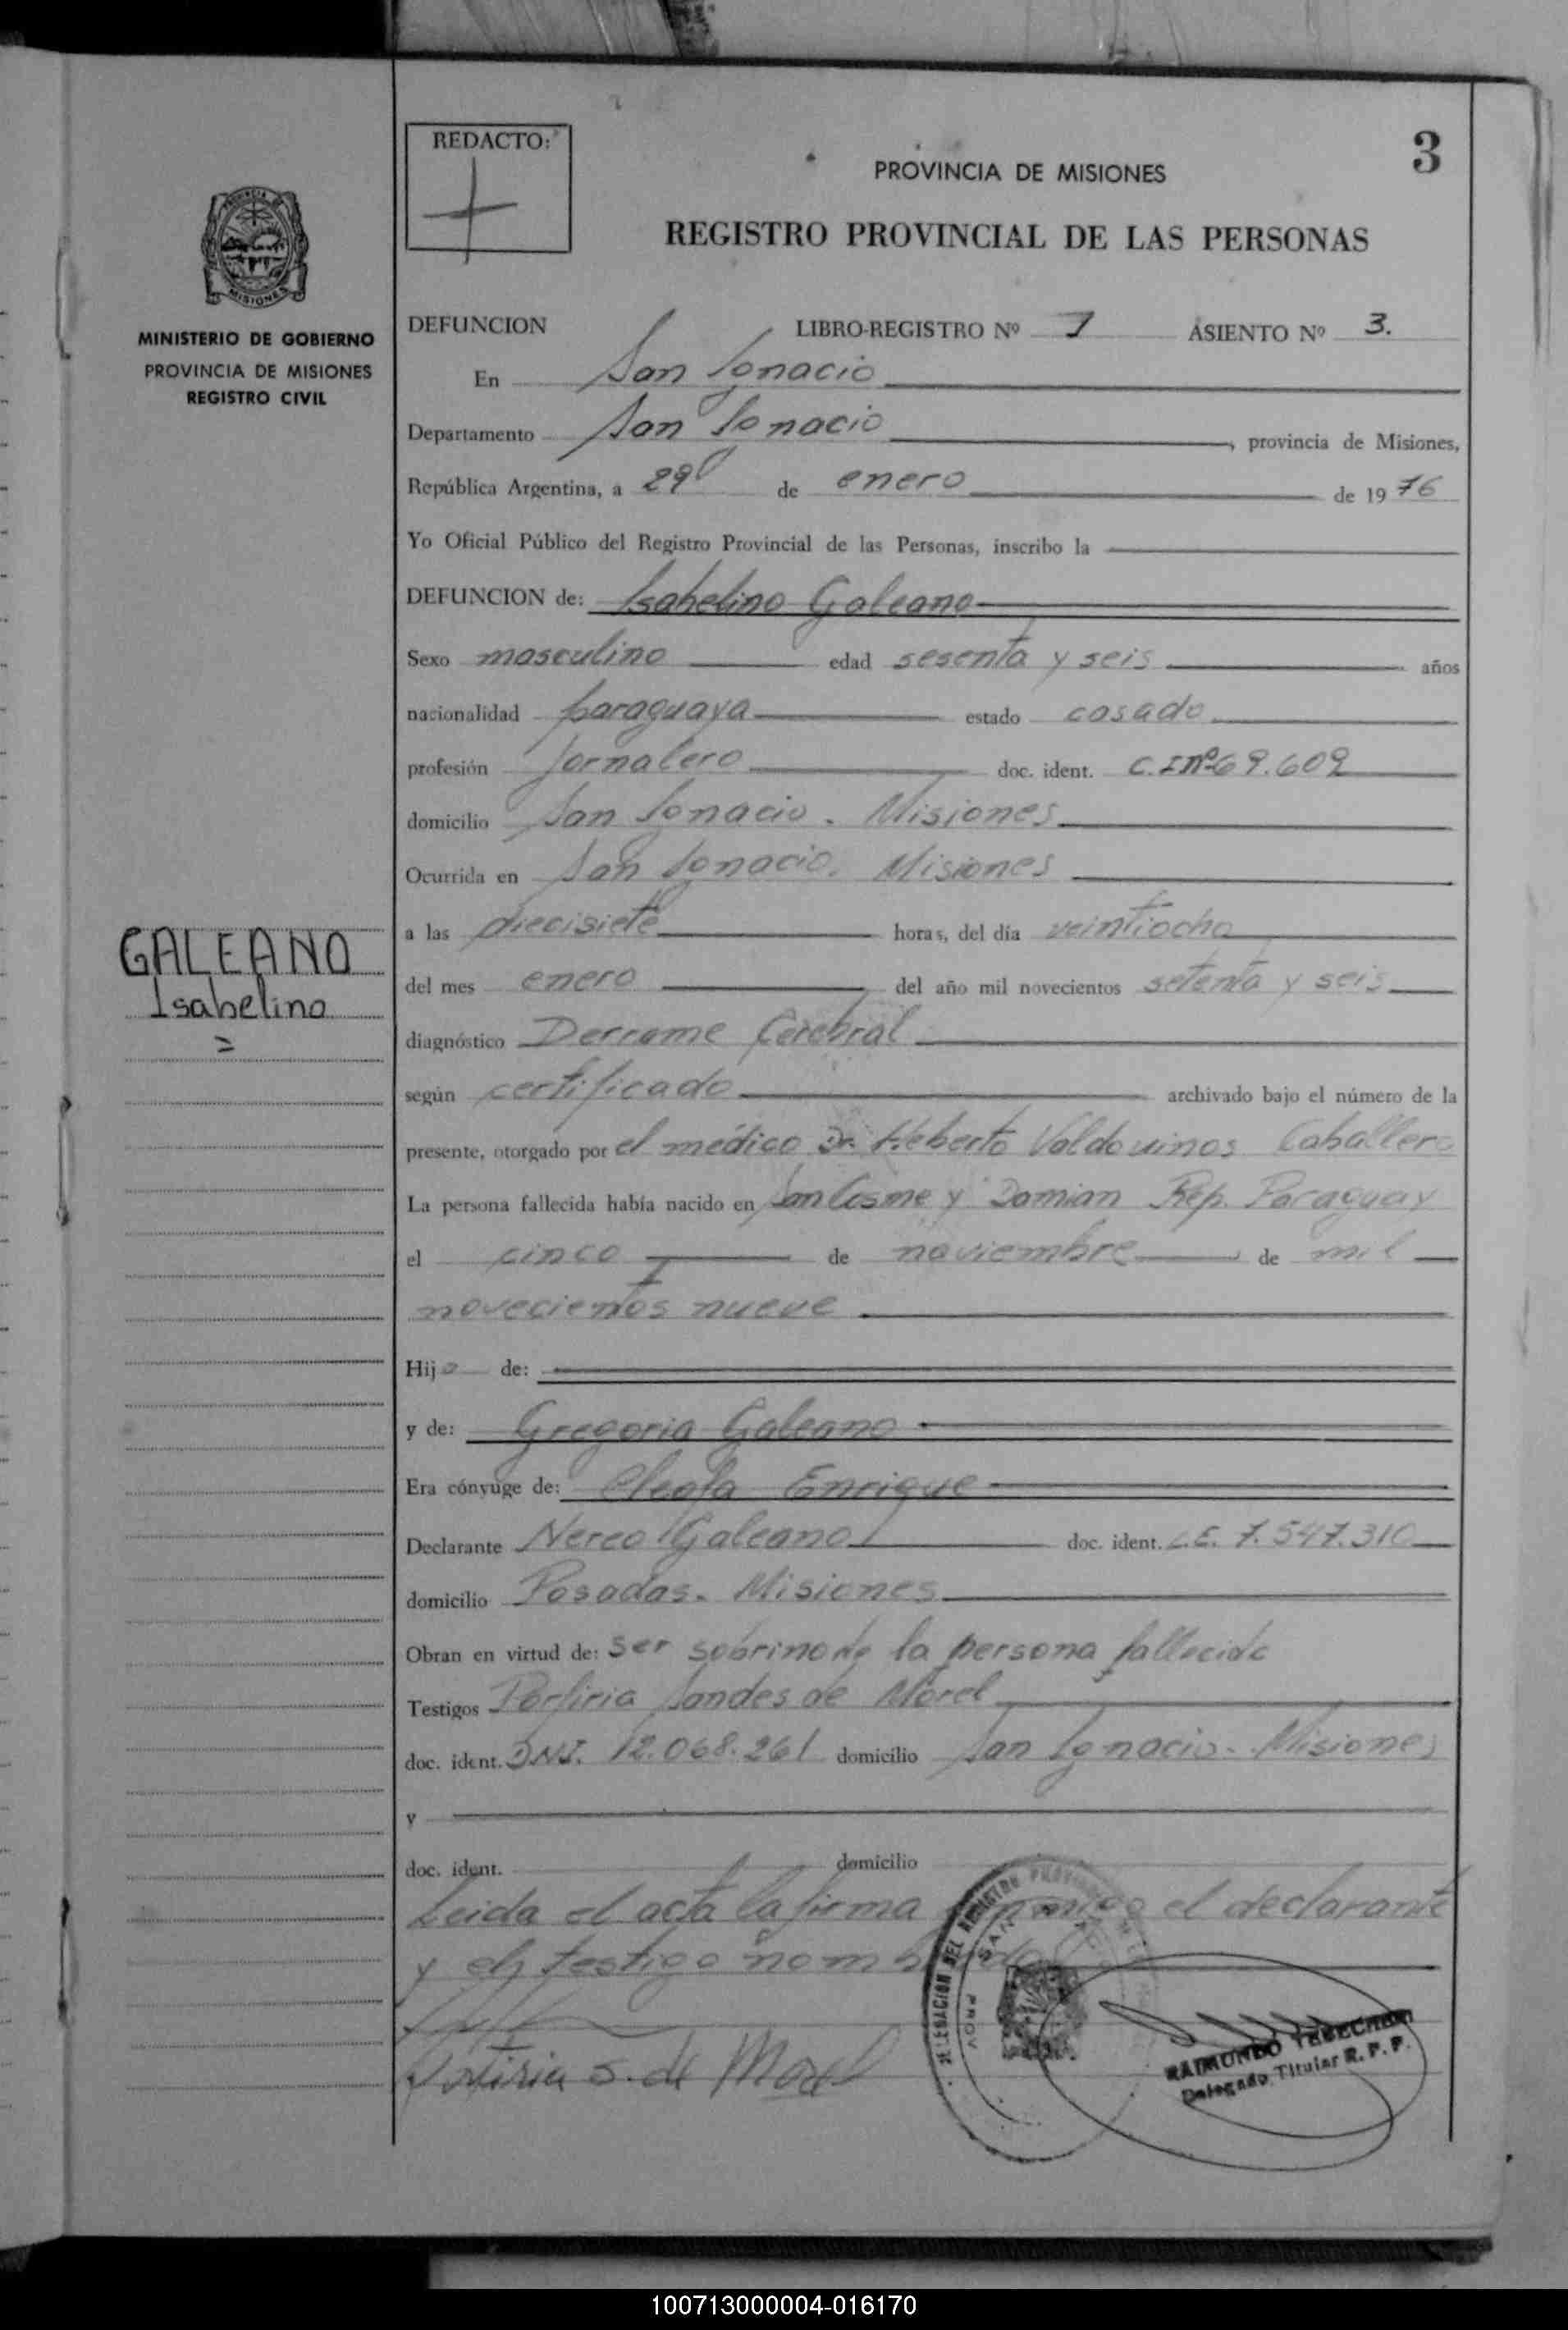 REDACTO:
3
PROVINCIA DE MISIONES
REGISTRO PROVINCIAL DE LAS PERSONAS
MISIONES
MINISTERIO DE GOBIERNO
PROVINCIA DE MISIONES
REGISTRO CIVIL
GALEANO
Isabelino
DEFUNCION LIBRO-REGISTRO Nº 1 ASIENTO Nº 3.
En San Ignacio
Departamento San Ignacio, provincia de Misiones,
República Argentina, a 29 de enero de 1976
Yo Oficial Público del Registro Provincial de las Personas, inscribo la
DEFUNCION de: Isabelino Galeano
Sexo masculino edad sesenta y seis años
nacionalidad paraguaya estado casado
profesión Jornalero doc. ident. C.I nº 69.609
domicilio San Ignacio. Misiones
Ocurrida en San Ignacio. Misiones
a las diecisiete horas, del día veintiocho
del mes enero del año mil novecientos setenta y seis
diagnóstico Derrame Cerebral
según certificado archivado bajo el número de la
presente, otorgado por el médico Dr. Heberto Valdovinos Caballero
La persona fallecida había nacido en San Cosme y Damian Rep. Paraguay
el cinco de noviembre de mil
novecientos nueve
Hijo de:
y de: Gregoria Galeano
Era cónyuge de: Cleofa Enrique
Declarante Nereo Galeano doc. ident. L.E. 7.547.310
domicilio Posadas. Misiones
Obran en virtud de: ser sobrino de la persona fallecida
Testigos Porfiria Sandes de Morel
doc. ident. DNI. 12.068.261 domicilio San Ignacio. Misiones
y
doc. ident. domicilio
Leida el acta la firma conmigo el declarante
y el testigo nombrado
Porfiria S. de Morel
DELEGACION DEL REGISTRO
RAIMUNDO
Delegado Titular R. P. P.
100713000004-016170